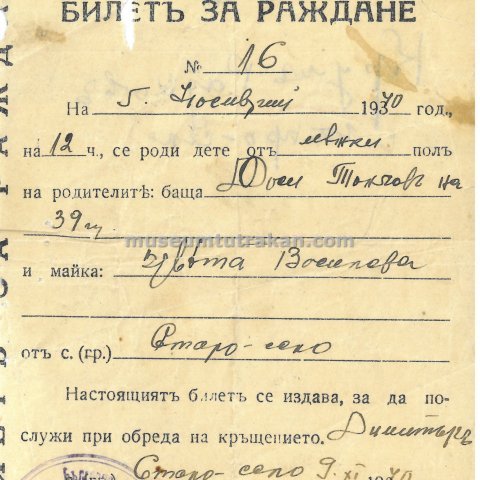 БИЛЕТЪ ЗА РАЖДАНЕ
№ 16
На 5. Ноемврий 1940 год.,
на 12 ч., се роди дете отъ мжжки полъ
на родителитѣ: баща Доси Тончовъ на
39 г.
museumtutrakan.com
и майка: Цвѣта Василева
отъ с. (гр.) Старо-село
Настоящиятъ билетъ се издава, за да по-
служи при обреда на кръщението. Димитъръ
Старо-село 9.XI 1940